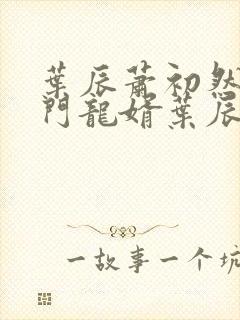 葉辰蕭初然
門龍婿葉辰
一故事一个坑